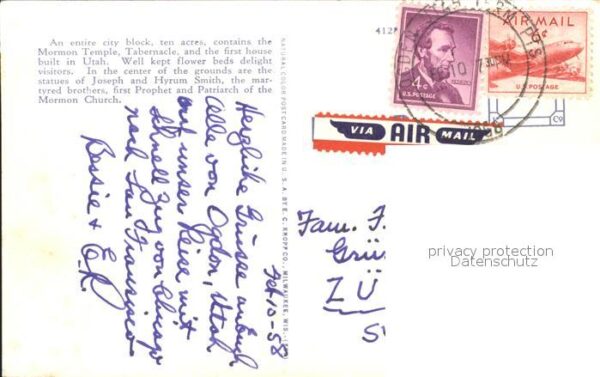 An entire city block, ten acres, contains the
Mormon Temple, Tabernacle, and the first house
built in Utah. Well kept flower beds delight
visitors. In the center of the grounds are the
statues of Joseph and Hyrum Smith, the mar-
tyred brothers, first Prophet and Patriarch of the
Mormon Church.
NATURAL COLOR POST CARD MADE IN U. S. A. BY E. C. KROPP CO., MILWAUKEE, WIS.
Feb 10-58
Herzliche Grüsse an Euch
alle von Ogden, Utah
auf unser Reise mit
schnell Zug von Chicago
nach San Francisco
Bessie + E.R.
412
4¢
U.S. POSTAGE
AIR MAIL
6¢
U.S. POSTAGE
VIA AIR MAIL
Fam. F.
Grü
ZÜ
S
Co
privacy protection
Datenschutz